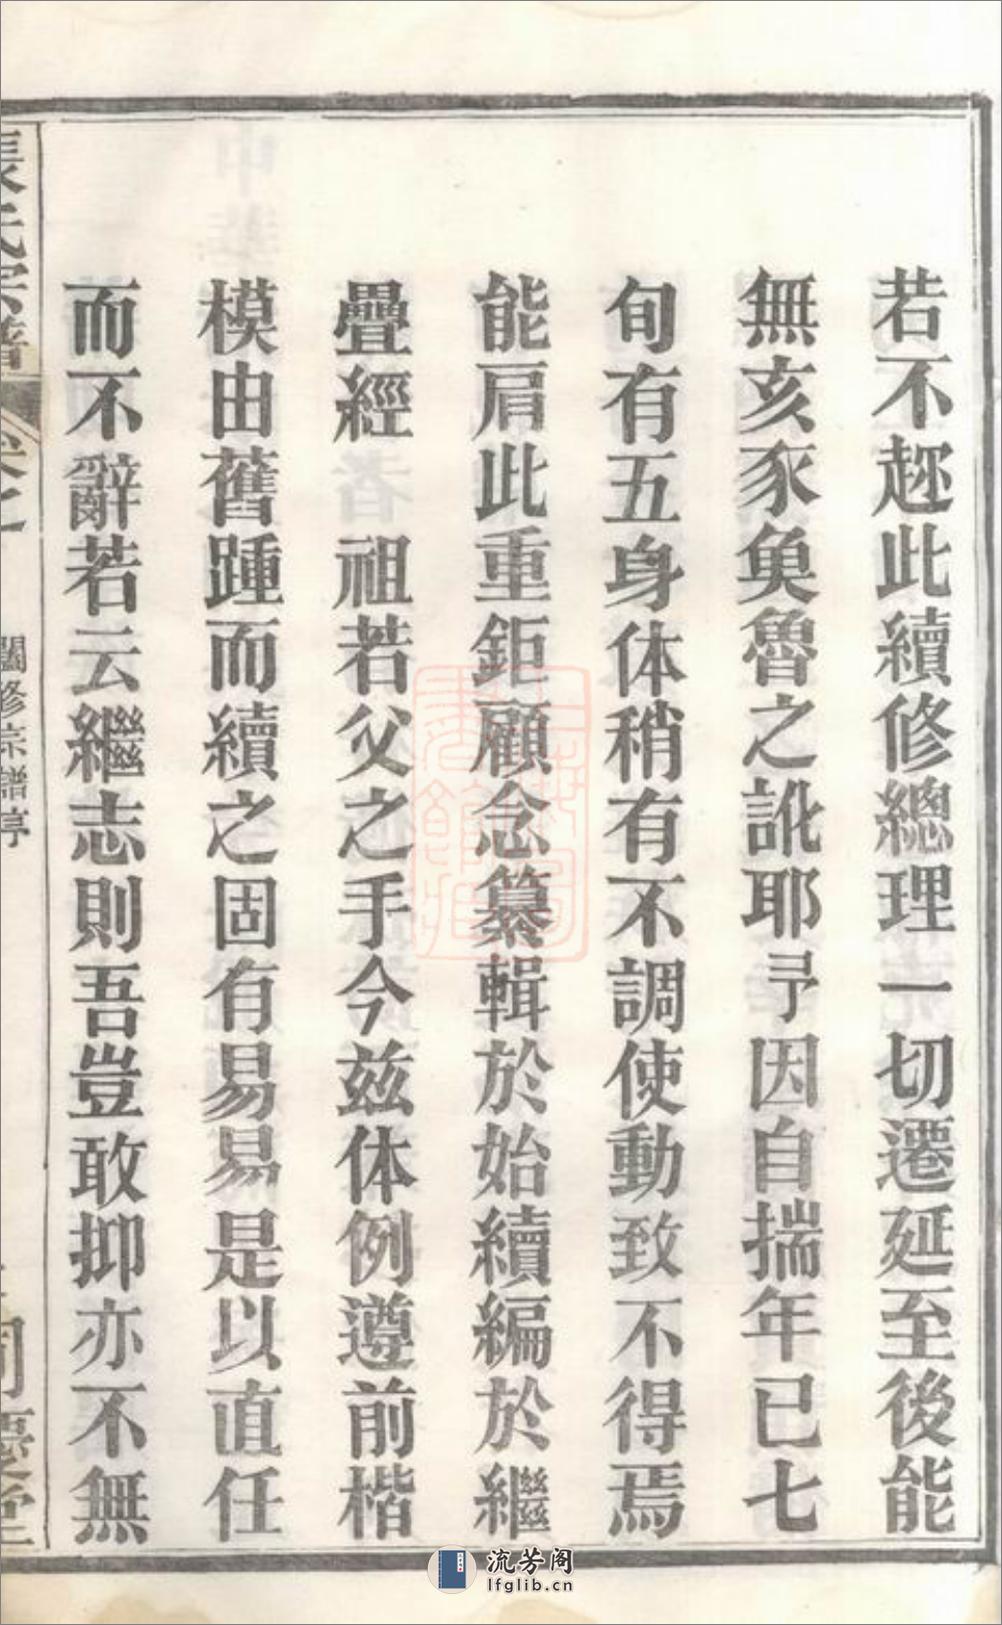 若不趂此續修總理一切遷延至後能
無亥豕魚魯之訛耶予因自揣年已七
旬有五身体稍有不調使動致不得焉
能肩此重鉅顧念纂輯於始續編於繼
疊經 祖若父之手今兹体例遵前楷
模由舊踵而續之固有易易是以直任
而不辭若云繼志則吾豈敢抑亦不無
張氏宗譜 卷一 闔修宗譜序
流芳阁
lfglib.cn